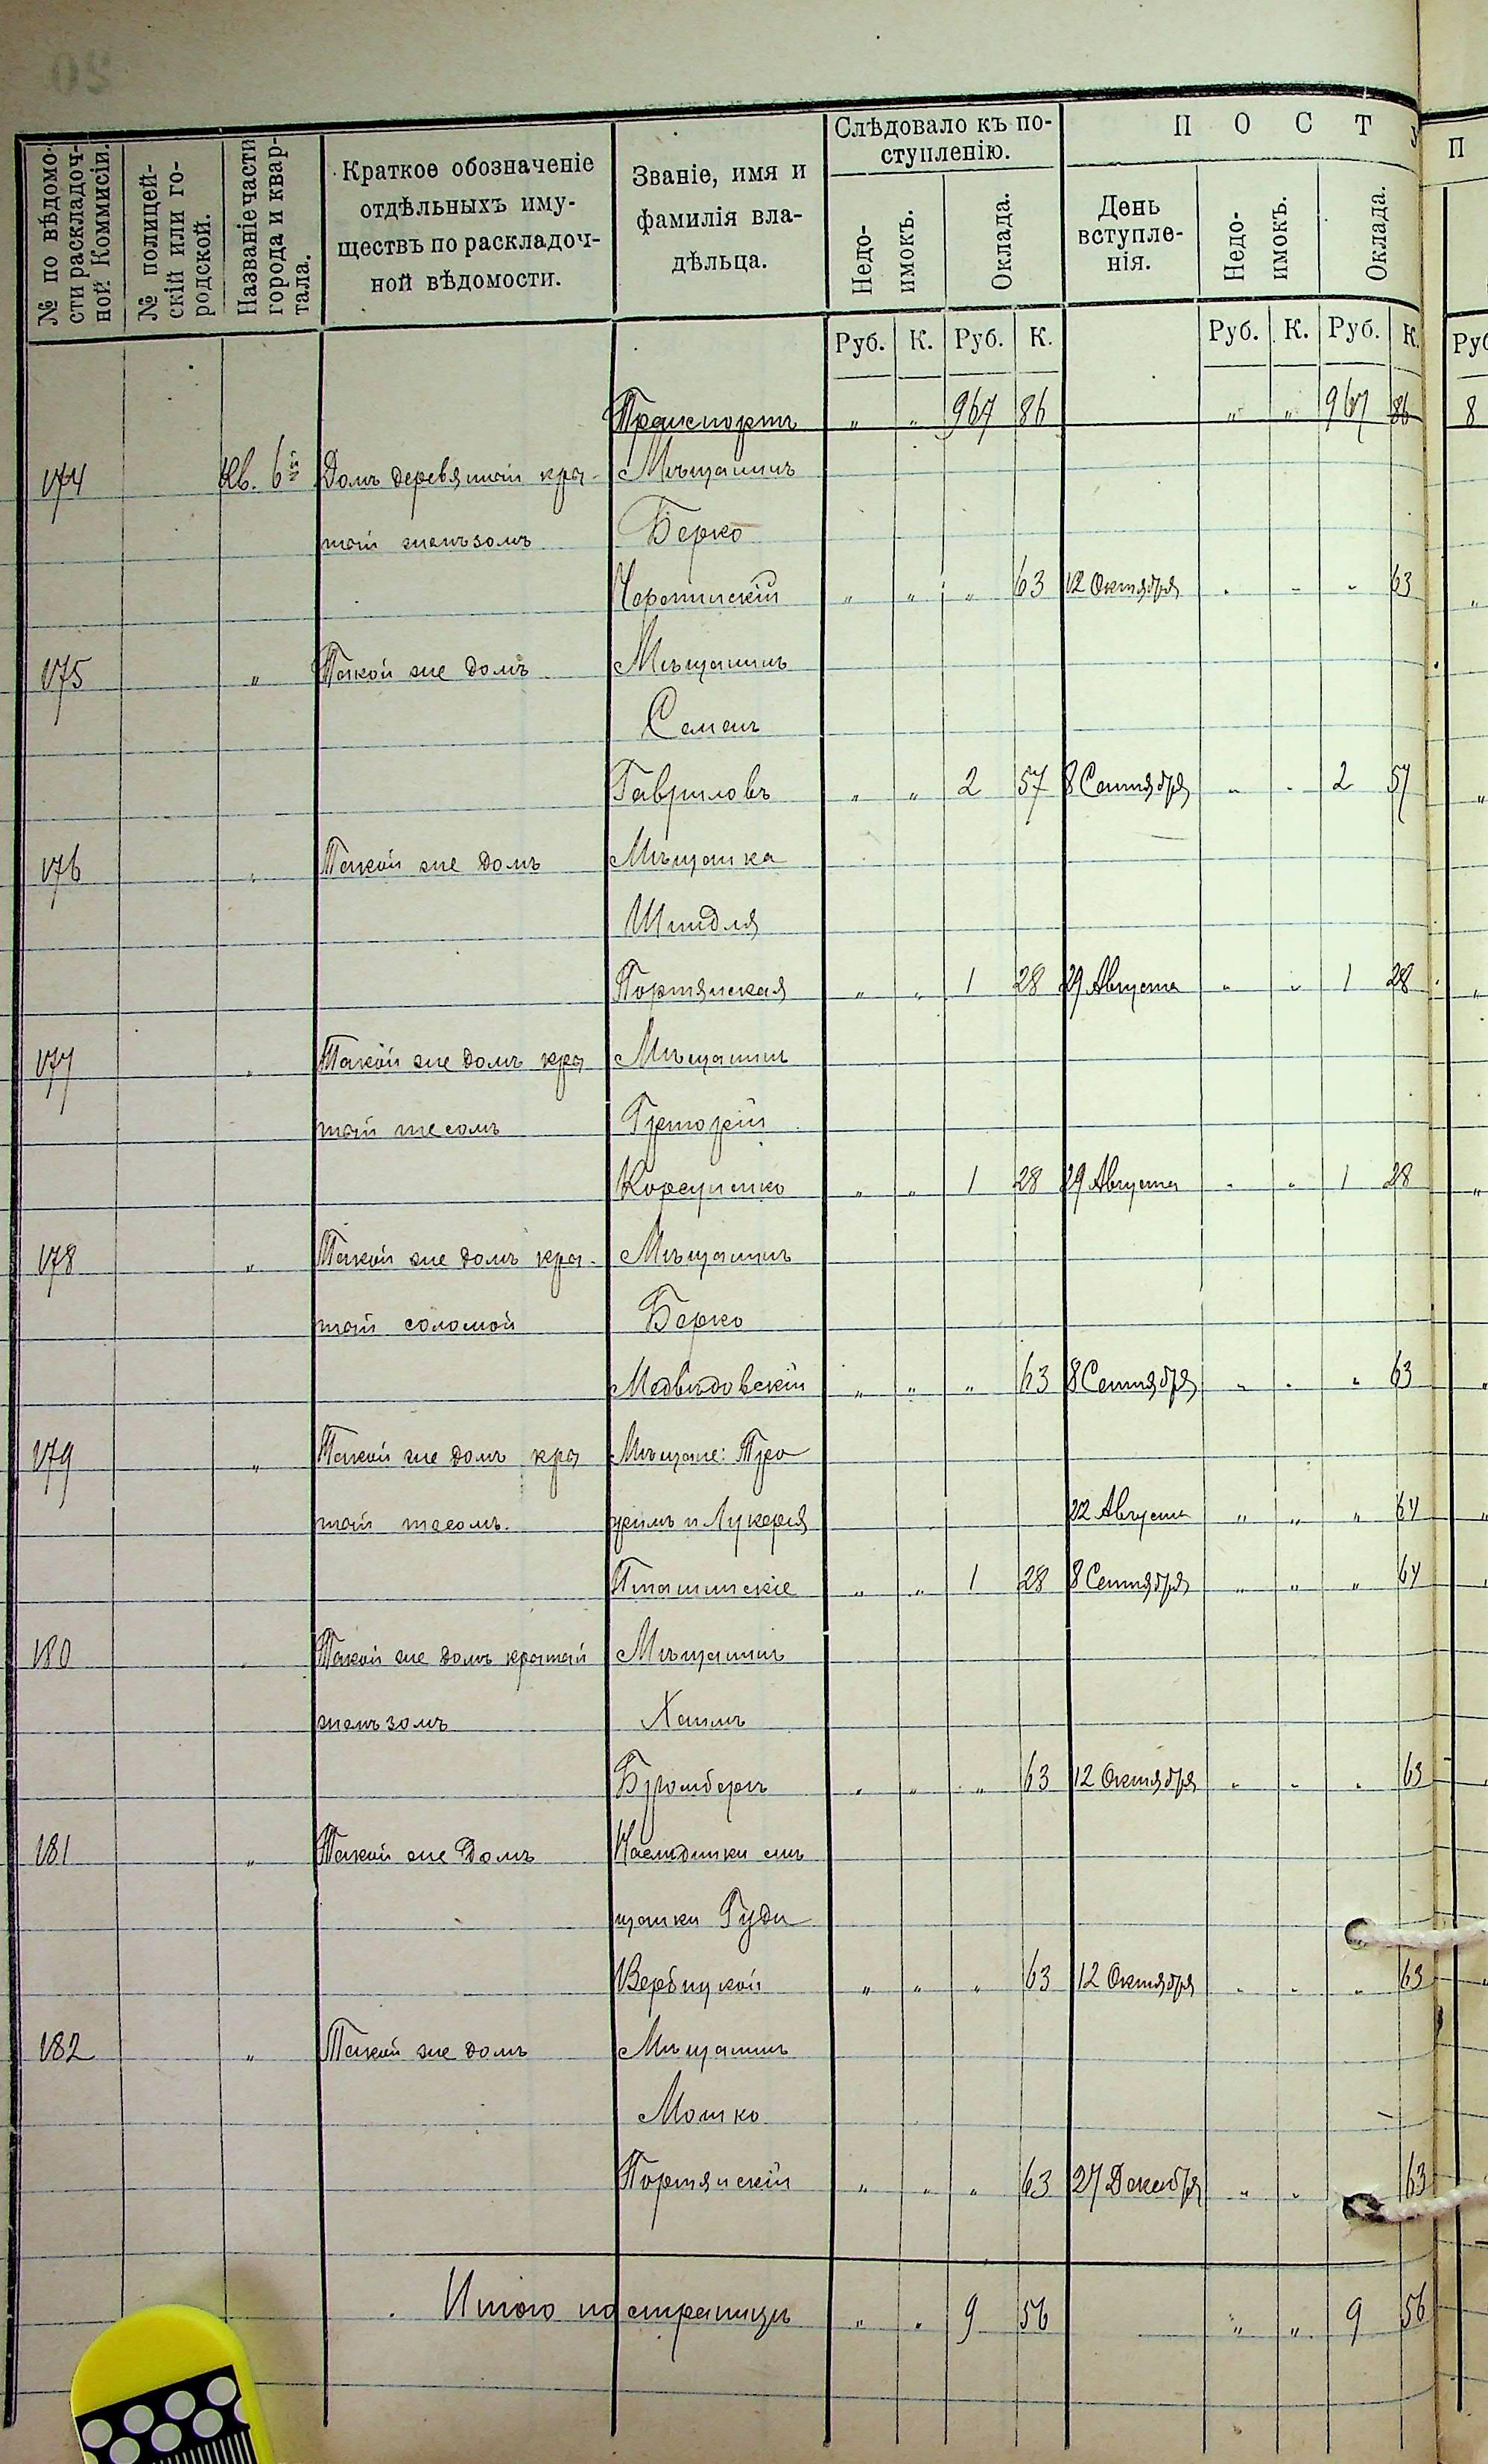 № по вѣдомо-
сти раскладоч-
ной Коммисіи.
№ полицей-
скій или го-
родской.
Названіе части
города и квар-
тала.
Краткое обозначеніе
отдѣльныхъ иму-
ществъ по раскладоч-
ной вѣдомости.
Званіе, имя и
фамилія вла-
дѣльца.
Слѣдовало къ по-
ступленію.
Недо-
имокъ.
Оклада.
П О С Т
День
вступле-
нія.
Недо-
имокъ.
Оклада.
П
Руб. К. Руб. К. Руб. К. Руб. К. Руб
Транспортъ " " 967 86 " " 967 86 8
174 Кв. 6й Домъ деревянный кры- Мѣщанинъ
тый желѣзомъ Берко
" " " 63 12 Октября " " " 63
175 " Такой же домъ Мѣщанинъ
Семенъ
Гавриловъ " " 2 57 8 Сентября " " 2 57
176 " Такой же домъ Мѣщанка
Шиндля
Портянская " " 1 28 29 Августа " " 1 28
177 " Такой же домъ кры Мѣщанинъ
тый тесомъ Григорій
Корсуненко " " 1 28 29 Августа " " 1 28
178 " Такой же домъ кры- Мѣщанинъ
тый соломой Берко
Медвѣдовскій " " " 63 8 Сентября " " " 63
179 " Такой же домъ кры Мѣщане: Тро
тый тесомъ. фимъ и Лукерія 22 Августа " " " 64
Пташинскіе " " 1 28 8 Сентября " " " 64
180 " Такой же домъ крытый Мѣщанинъ
желѣзомъ Хаимъ
Бромбергъ " " " 63 12 Октября " " " 63
181 " Такой же Домъ Наслѣдники мѣ
щанки Гуди
Вербицкой " " " 63 12 Октября " " " 63
182 " Такой же домъ Мѣщанинъ
Мошко
Портянскій " " " 63 27 Декабря " " 63
Итого по страницѣ " " 9 56 " " 9 56